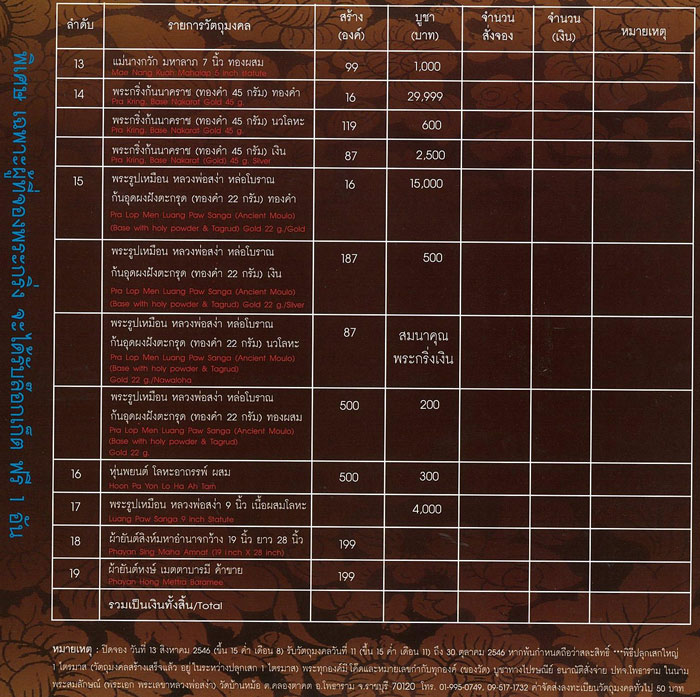 ลำดับ รายการวัตถุมงคล สร้าง (องค์) บูชา (บาท) จำนวน สั่งจอง จำนวน (เงิน) หมายเหตุ
13 แม่นางกวัก มหาลาภ 7 นิ้ว ทองผสม 99 1,000
Mae Nang Kuah Mahalap 5 Inch statute
14 พระกริ่งก้นนาคราช (ทองคำ 45 กรัม) ทองคำ 16 29,999
Pra Kring, Base Nakarat Gold 45 g.
พระกริ่งก้นนาคราช (ทองคำ 45 กรัม) นวโลหะ 119 600
Pra Kring, Base Nakarot Gold 45 g.
พระกริ่งก้นนาคราช (ทองคำ 45 กรัม) เงิน 87 2,500
Pra Kring, Base Nakarat (Gold) 45 g. Silver
15 พระรูปเหมือน หลวงพ่อสง่า หล่อโบราณ 16 15,000
ก้นอุดผงฝังตะกรุด (ทองคำ 22 กรัม) ทองคำ
Pra Lop Men Luang Paw Sanga (Ancient Moulo)
(Base with holy powder & Tagrud) Gold 22 g./Gold
พระรูปเหมือน หลวงพ่อสง่า หล่อโบราณ 187 500
ก้นอุดผงฝังตะกรุด (ทองคำ 22 กรัม) เงิน
Pra Lop Men Luang Paw Sanga (Ancient Moulo)
(Base with holy powder & Tagrud) Gold 22 g./Silver
พระรูปเหมือน หลวงพ่อสง่า หล่อโบราณ 87 สมนาคุณ
ก้นอุดผงฝังตะกรุด (ทองคำ 22 กรัม) นวโลหะ พระกริ่งเงิน
Pra Lop Men Luang Paw Sanga (Ancient Moulo)
(Base with holy powder & Tagrud)
Gold 22 g./Nawaloha
พระรูปเหมือน หลวงพ่อสง่า หล่อโบราณ 500 200
ก้นอุดผงฝังตะกรุด (ทองคำ 22 กรัม) ทองผสม
Pra Lop Men Luang Paw Sanga (Ancient Moulo)
(Base with holy powder & Tagrud)
Gold 22 g.
16 หุ่นพยนต์ โลหะอาถรรพ์ ผสม 500 300
Hoon Pa Yon Lo Ha Ah Tarn
17 พระรูปเหมือน หลวงพ่อสง่า 9 นิ้ว เนื้อผสมโลหะ 4,000
Luang Paw Sanga 9 Inch Statute
18 ผ้ายันต์สิงห์มหาอำนาจกว้าง 19 นิ้ว ยาว 28 นิ้ว 199
Phayan Sing Maha Amnat (19 Inch X 28 inch)
19 ผ้ายันต์หงษ์ เมตตาบารมี ค้าขาย 199
Phayan Hong Mettra Baramee
รวมเป็นเงินทั้งสิ้น/Total
พิเศษ เฉพาะผู้ที่จองพระกริ่ง จะได้รับล็อกเก็ต ฟรี 1 อัน
หมายเหตุ : ปิดจอง วันที่ 13 สิงหาคม 2546 (ขึ้น 15 ค่ำ เดือน 8) รับวัตถุมงคลวันที่ 11 (ขึ้น 15 ค่ำ เดือน 11) ถึง 30 ตุลาคม 2546 หากพ้นกำหนดถือว่าสละสิทธิ์ ***พิธีปลุกเสกใหญ่
1 ไตรมาส (วัตถุมงคลสร้างเสร็จแล้ว อยู่ในระหว่างปลุกเสก 1 ไตรมาส) พระทุกองค์มีโค๊ดและหมายเลขกำกับทุกองค์ (ของวัด) บูชาทางไปรษณีย์ ธนาณัติสั่งจ่าย ปทจ.โพธาราม ในนาม
พระสมลักษณ์ (พระเอก พระเลขาหลวงพ่อสง่า) วัดบ้านหม้อ ต.คลองตาคต อ.โพธาราม จ.ราชบุรี 70120 โทร. 01-995-0749, 09-517-732 ค่าจัดส่งทางไปรษณีย์วัตถุมงคลทั่วไป 50 บาท